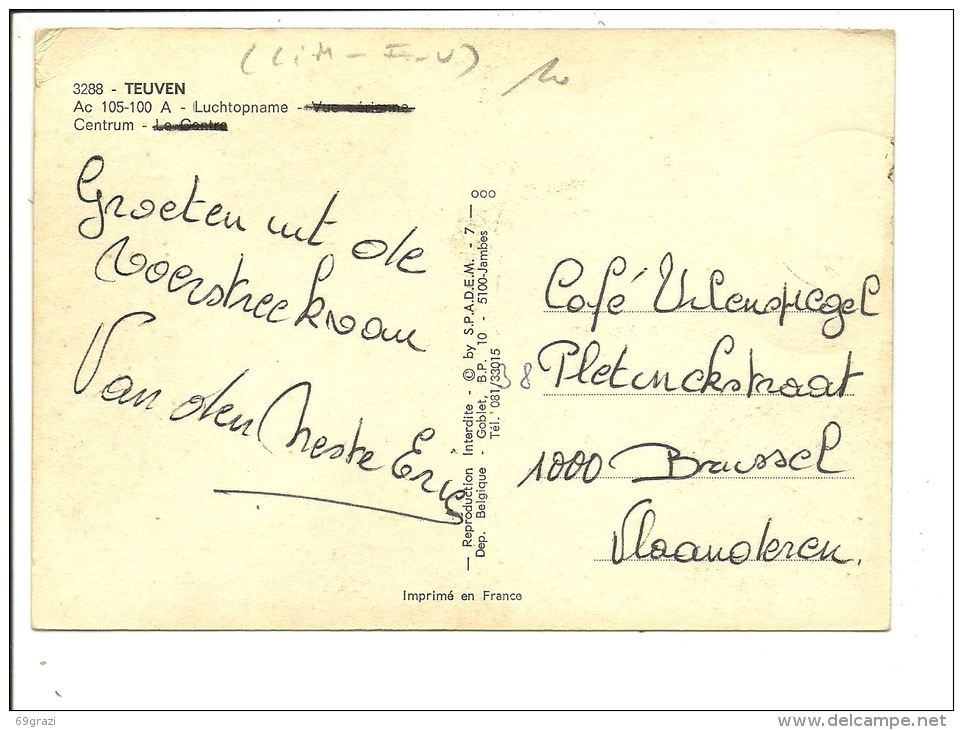 (LiM - F-V)
3288 - TEUVEN
Ac 105-100 A - Luchtopname - Vue aérienne
Centrum - Le Centre
Groeten uit de
Voerstreek van
Van den Neste Eric
— Reproduction Interdite - © by S.P.A.D.E.M. - 7 — ooo
Dep. Belgique - Goblet, B.P. 10 - 5100-Jambes
Tél. 081/33015
Café Uilenspiegel
38 Pletinckstraat
1000 Brussel
Vlaanderen.
Imprimé en France
69grazi
www.delcampe.net